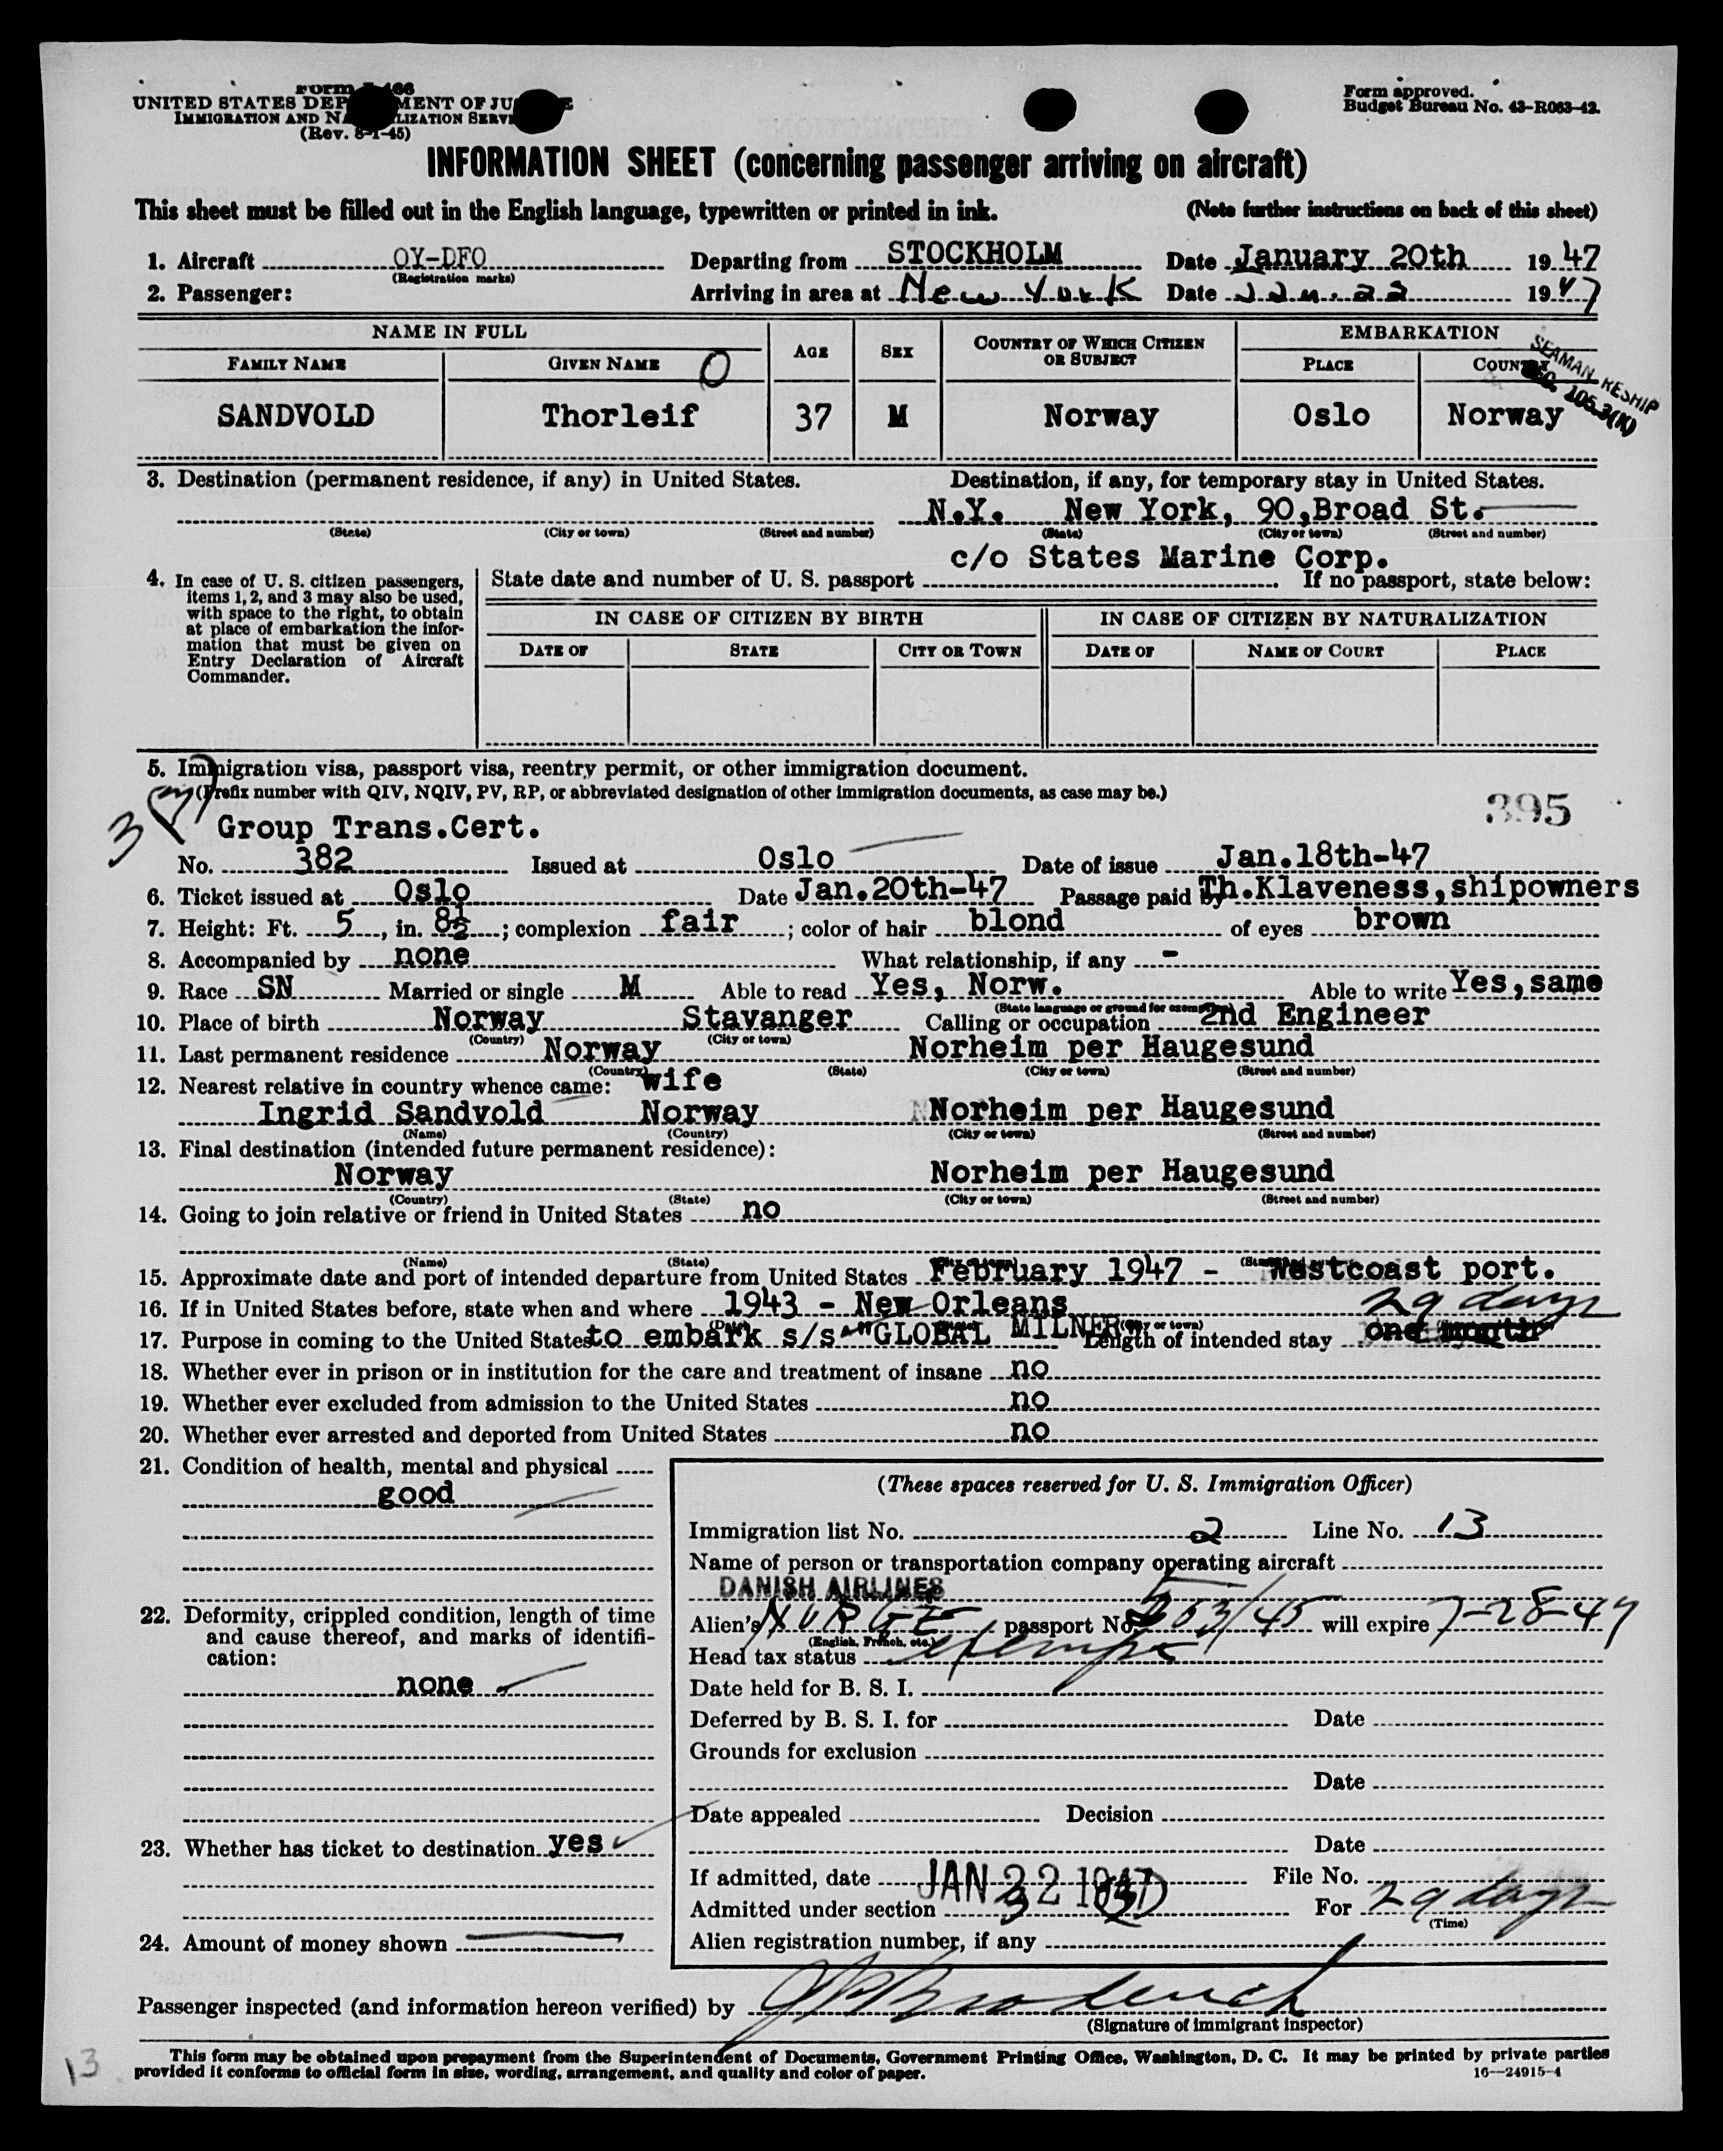 Form I-466
UNITED STATES DEPARTMENT OF JUSTICE
IMMIGRATION AND NATURALIZATION SERVICE
(Rev. 8-1-45)
Form approved.
Budget Bureau No. 43-R063-42.
INFORMATION SHEET (concerning passenger arriving on aircraft)
This sheet must be filled out in the English language, typewritten or printed in ink. (Note further instructions on back of this sheet)
1. Aircraft OY-DFO Departing from STOCKHOLM Date January 20th 19 47
(Registration marks)
2. Passenger: Arriving in area at New York Date Jan. 22 1947
NAME IN FULL AGE SEX COUNTRY OF WHICH CITIZEN OR SUBJECT EMBARKATION
FAMILY NAME GIVEN NAME O PLACE COUNTRY
SEAMAN RESHIP
SEC. 105.3(K)
SANDVOLD Thorleif 37 M Norway Oslo Norway
3. Destination (permanent residence, if any) in United States. Destination, if any, for temporary stay in United States.
N.Y. New York, 90,Broad St.
(State) (City or town) (Street and number) (State) (City or town) (Street and number)
c/o States Marine Corp.
4. In case of U. S. citizen passengers, items 1, 2, and 3 may also be used, with space to the right, to obtain at place of embarkation the information that must be given on Entry Declaration of Aircraft Commander.
State date and number of U. S. passport . If no passport, state below:
IN CASE OF CITIZEN BY BIRTH IN CASE OF CITIZEN BY NATURALIZATION
DATE OF STATE CITY OR TOWN DATE OF NAME OF COURT PLACE
5. Immigration visa, passport visa, reentry permit, or other immigration document.
(Prefix number with QIV, NQIV, PV, RP, or abbreviated designation of other immigration documents, as case may be.)
395
3
Group Trans.Cert.
No. 382 Issued at Oslo Date of issue Jan.18th-47
6. Ticket issued at Oslo Date Jan.20th-47 Passage paid by Th.Klaveness,shipowners
7. Height: Ft. 5, in. 8½; complexion fair; color of hair blond of eyes brown
8. Accompanied by none What relationship, if any -
9. Race SN Married or single M Able to read Yes, Norw. Able to write Yes,same
(State language or ground for exemption)
10. Place of birth Norway Stavanger Calling or occupation 2nd Engineer
(Country) (City or town)
11. Last permanent residence Norway Norheim per Haugesund
(Country) (State) (City or town) (Street and number)
12. Nearest relative in country whence came: wife
Ingrid Sandvold Norway Norheim per Haugesund
(Name) (Country) (City or town) (Street and number)
13. Final destination (intended future permanent residence):
Norway Norheim per Haugesund
(Country) (State) (City or town) (Street and number)
14. Going to join relative or friend in United States no
(Name) (State)
15. Approximate date and port of intended departure from United States February 1947 - Westcoast port.
16. If in United States before, state when and where 1943 - New Orleans
(Date) (City or town)
29 days
17. Purpose in coming to the United States to embark s/s "GLOBAL MILNER" Length of intended stay one month
18. Whether ever in prison or in institution for the care and treatment of insane no
19. Whether ever excluded from admission to the United States no
20. Whether ever arrested and deported from United States no
21. Condition of health, mental and physical
good
22. Deformity, crippled condition, length of time and cause thereof, and marks of identification:
none
23. Whether has ticket to destination yes
24. Amount of money shown
(These spaces reserved for U. S. Immigration Officer)
Immigration list No. 2 Line No. 13
Name of person or transportation company operating aircraft
DANISH AIRLINES
Alien's NORGE passport No. 53/45 will expire 7-28-47
(English, French, etc.)
Head tax status exempt
Date held for B. S. I.
Deferred by B. S. I. for Date
Grounds for exclusion
Date
Date appealed Decision
Date
If admitted, date JAN 22 1947 File No.
Admitted under section 3 (3) For 29 days
(Time)
Alien registration number, if any
Passenger inspected (and information hereon verified) by
(Signature of immigrant inspector)
This form may be obtained upon prepayment from the Superintendent of Documents, Government Printing Office, Washington, D. C. It may be printed by private parties
provided it conforms to official form in size, wording, arrangement, and quality and color of paper.
16—24915-4
13